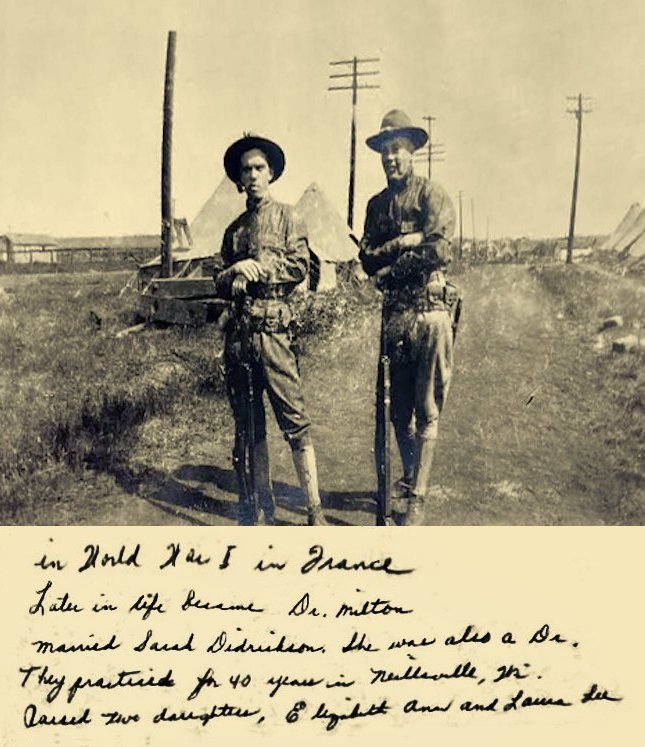 in World War I in France
Later in life became Dr. Milton
married Sarah Didrickson. She was also a Dr.
They practiced for 40 years in Neillsville, Wi.
Raised two daughters, Elizabeth Ann and Laura Lee